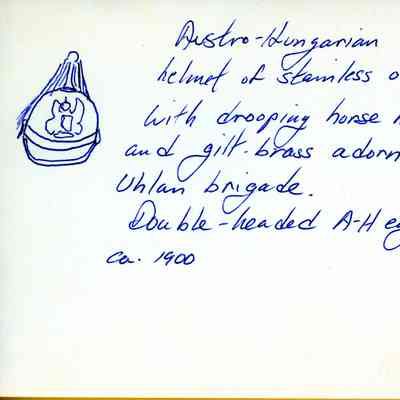 Austro-Hungarian
helmet of stainless
with drooping horse
and gilt-brass adorn
Uhlan brigade.
Double-headed A-H
ca. 1900